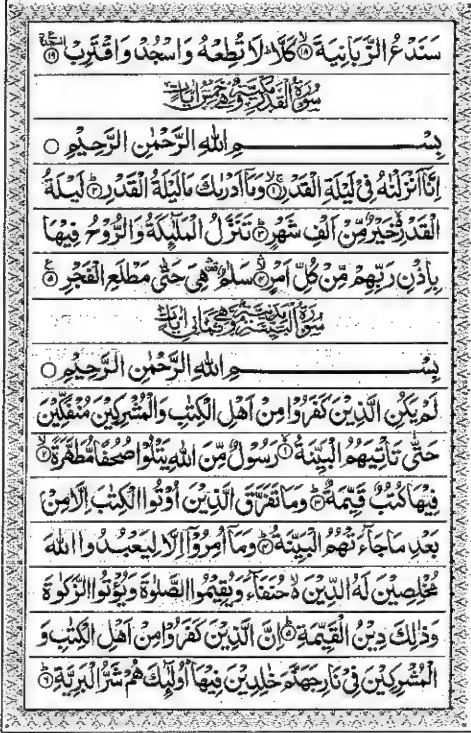 سَنَدْعُ الزَّبَانِيَةَ ۝١٨ كَلَّا ؕ لَا تُطِعْهُ وَاسْجُدْ وَاقْتَرِبْ ۝١٩
سُوْرَةُ الْقَدْرِ مَكِّيَّةٌ وَّهِيَ خَمْسُ اٰيَاتٍ
بِسْمِ اللهِ الرَّحْمٰنِ الرَّحِيْمِ ○
اِنَّاۤ اَنْزَلْنٰهُ فِيْ لَيْلَةِ الْقَدْرِ ۝١ وَمَاۤ اَدْرٰىكَ مَا لَيْلَةُ الْقَدْرِ ۝٢ لَيْلَةُ
الْقَدْرِ خَيْرٌ مِّنْ اَلْفِ شَهْرٍ ۝٣ تَنَزَّلُ الْمَلٰٓئِكَةُ وَالرُّوْحُ فِيْهَا
بِاِذْنِ رَبِّهِمْ مِّنْ كُلِّ اَمْرٍ ۝٤ سَلٰمٌ هِيَ حَتّٰى مَطْلَعِ الْفَجْرِ ۝٥
سُوْرَةُ الْبَيِّنَةِ مَدَنِيَّةٌ وَّهِيَ ثَمَانِيْ اٰيَاتٍ
بِسْمِ اللهِ الرَّحْمٰنِ الرَّحِيْمِ ○
لَمْ يَكُنِ الَّذِيْنَ كَفَرُوْا مِنْ اَهْلِ الْكِتٰبِ وَالْمُشْرِكِيْنَ مُنْفَكِّيْنَ
حَتّٰى تَاْتِيَهُمُ الْبَيِّنَةُ ۝١ رَسُوْلٌ مِّنَ اللهِ يَتْلُوْا صُحُفًا مُّطَهَّرَةً ۝٢
فِيْهَا كُتُبٌ قَيِّمَةٌ ۝٣ وَمَا تَفَرَّقَ الَّذِيْنَ اُوْتُوا الْكِتٰبَ اِلَّا مِنْۢ
بَعْدِ مَا جَآءَتْهُمُ الْبَيِّنَةُ ۝٤ وَمَاۤ اُمِرُوْۤا اِلَّا لِيَعْبُدُوا اللهَ
مُخْلِصِيْنَ لَهُ الدِّيْنَ ۙ حُنَفَآءَ وَيُقِيْمُوا الصَّلٰوةَ وَيُؤْتُوا الزَّكٰوةَ
وَذٰلِكَ دِيْنُ الْقَيِّمَةِ ۝٥ اِنَّ الَّذِيْنَ كَفَرُوْا مِنْ اَهْلِ الْكِتٰبِ وَ
الْمُشْرِكِيْنَ فِيْ نَارِ جَهَنَّمَ خٰلِدِيْنَ فِيْهَا ؕ اُولٰٓئِكَ هُمْ شَرُّ الْبَرِيَّةِ ۝٦